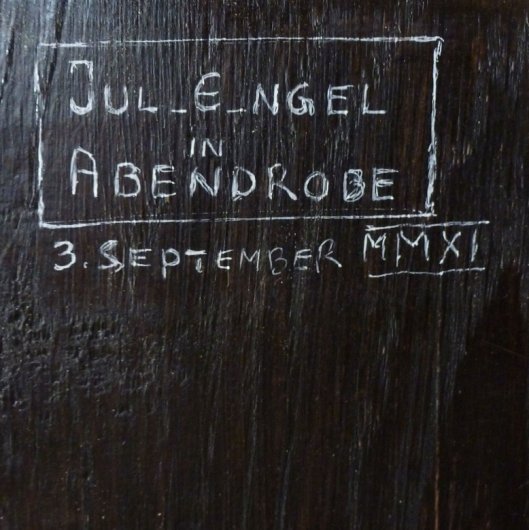 JUL_E_NGEL
IN
ABENDROBE
3. SEPTEMBER MMXI